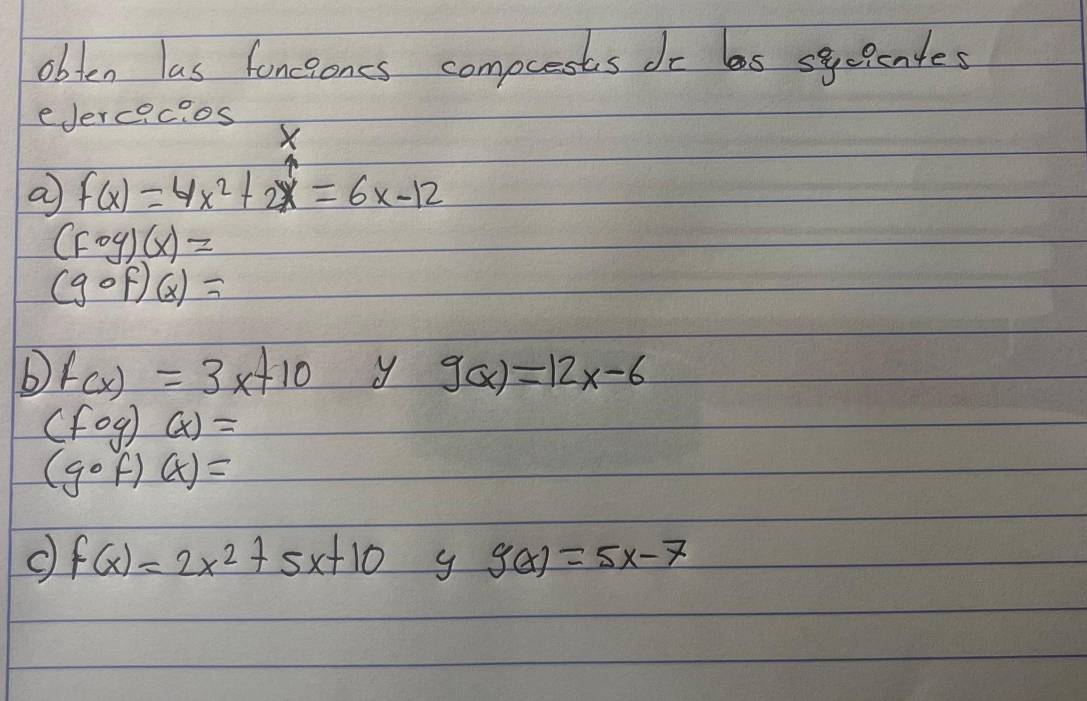 obten las funciones compuestas de los siguientes
ejercicios
x
↑
a) f(x) = 4x² + 2x = 6x-12
(fog)(x) =
(g∘f)(x) =
b) f(x) = 3x+10 y g(x)=12x-6
(fog) (x) =
(g∘f) (x) =
c) f(x) = 2x² + 5x+10 y g(x) = 5x-7